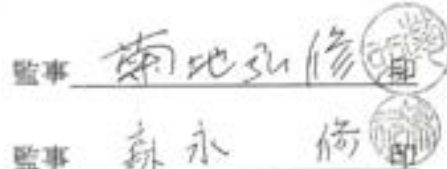 監事 菊地弘修 印
監事 永 脩 印